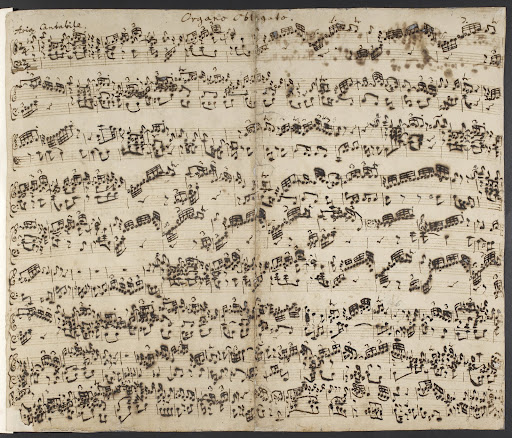 Aria Cantabile. Organo Obligato.